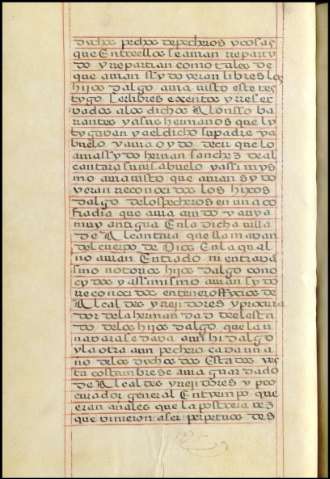 dichos pechos de pecheros y cosas
que Entrellos se auian reparty
do y repartian como tales de
que auian sydo y eran libres los
hijos dalgo auia uisto este tes
tygo ser libres exentos y reser
bados a los dichos Alonsso ba
rrantes y a sus hermanos que ly
tygauan y a el dicho su padre y a
buelo y auia oydo decir que lo
auia sydo hernan sanchez de al
cantara su uis abuelo y assi mys
mo auia uisto que auian sydo
y eran reconocidos los hijos
dalgo de los pecheros en una co
fradia que auia auido y auya
muy antigua En la dicha uilla
de Alcantara que llamauan
del cuerpo de Dios En la qual
no auian Entrado ni entraba
sino notorios hijos dalgo como
cydos y assimismo auian sydo
reconocidos en tener officios de
Alcaldes y regidores y procura
dor de la hermandad del esta
do de los hijos dalgo que la u
na uara se daua a un hidalgo
y la otra a un pechero cada un a
no de los dichos dos Estados y es
ta costumbre se auia guardado
de Alcaldes y regidores y pro
curador general En tyempo que
eran añales que la postreia uez
que uinieron a ser perpetuos des